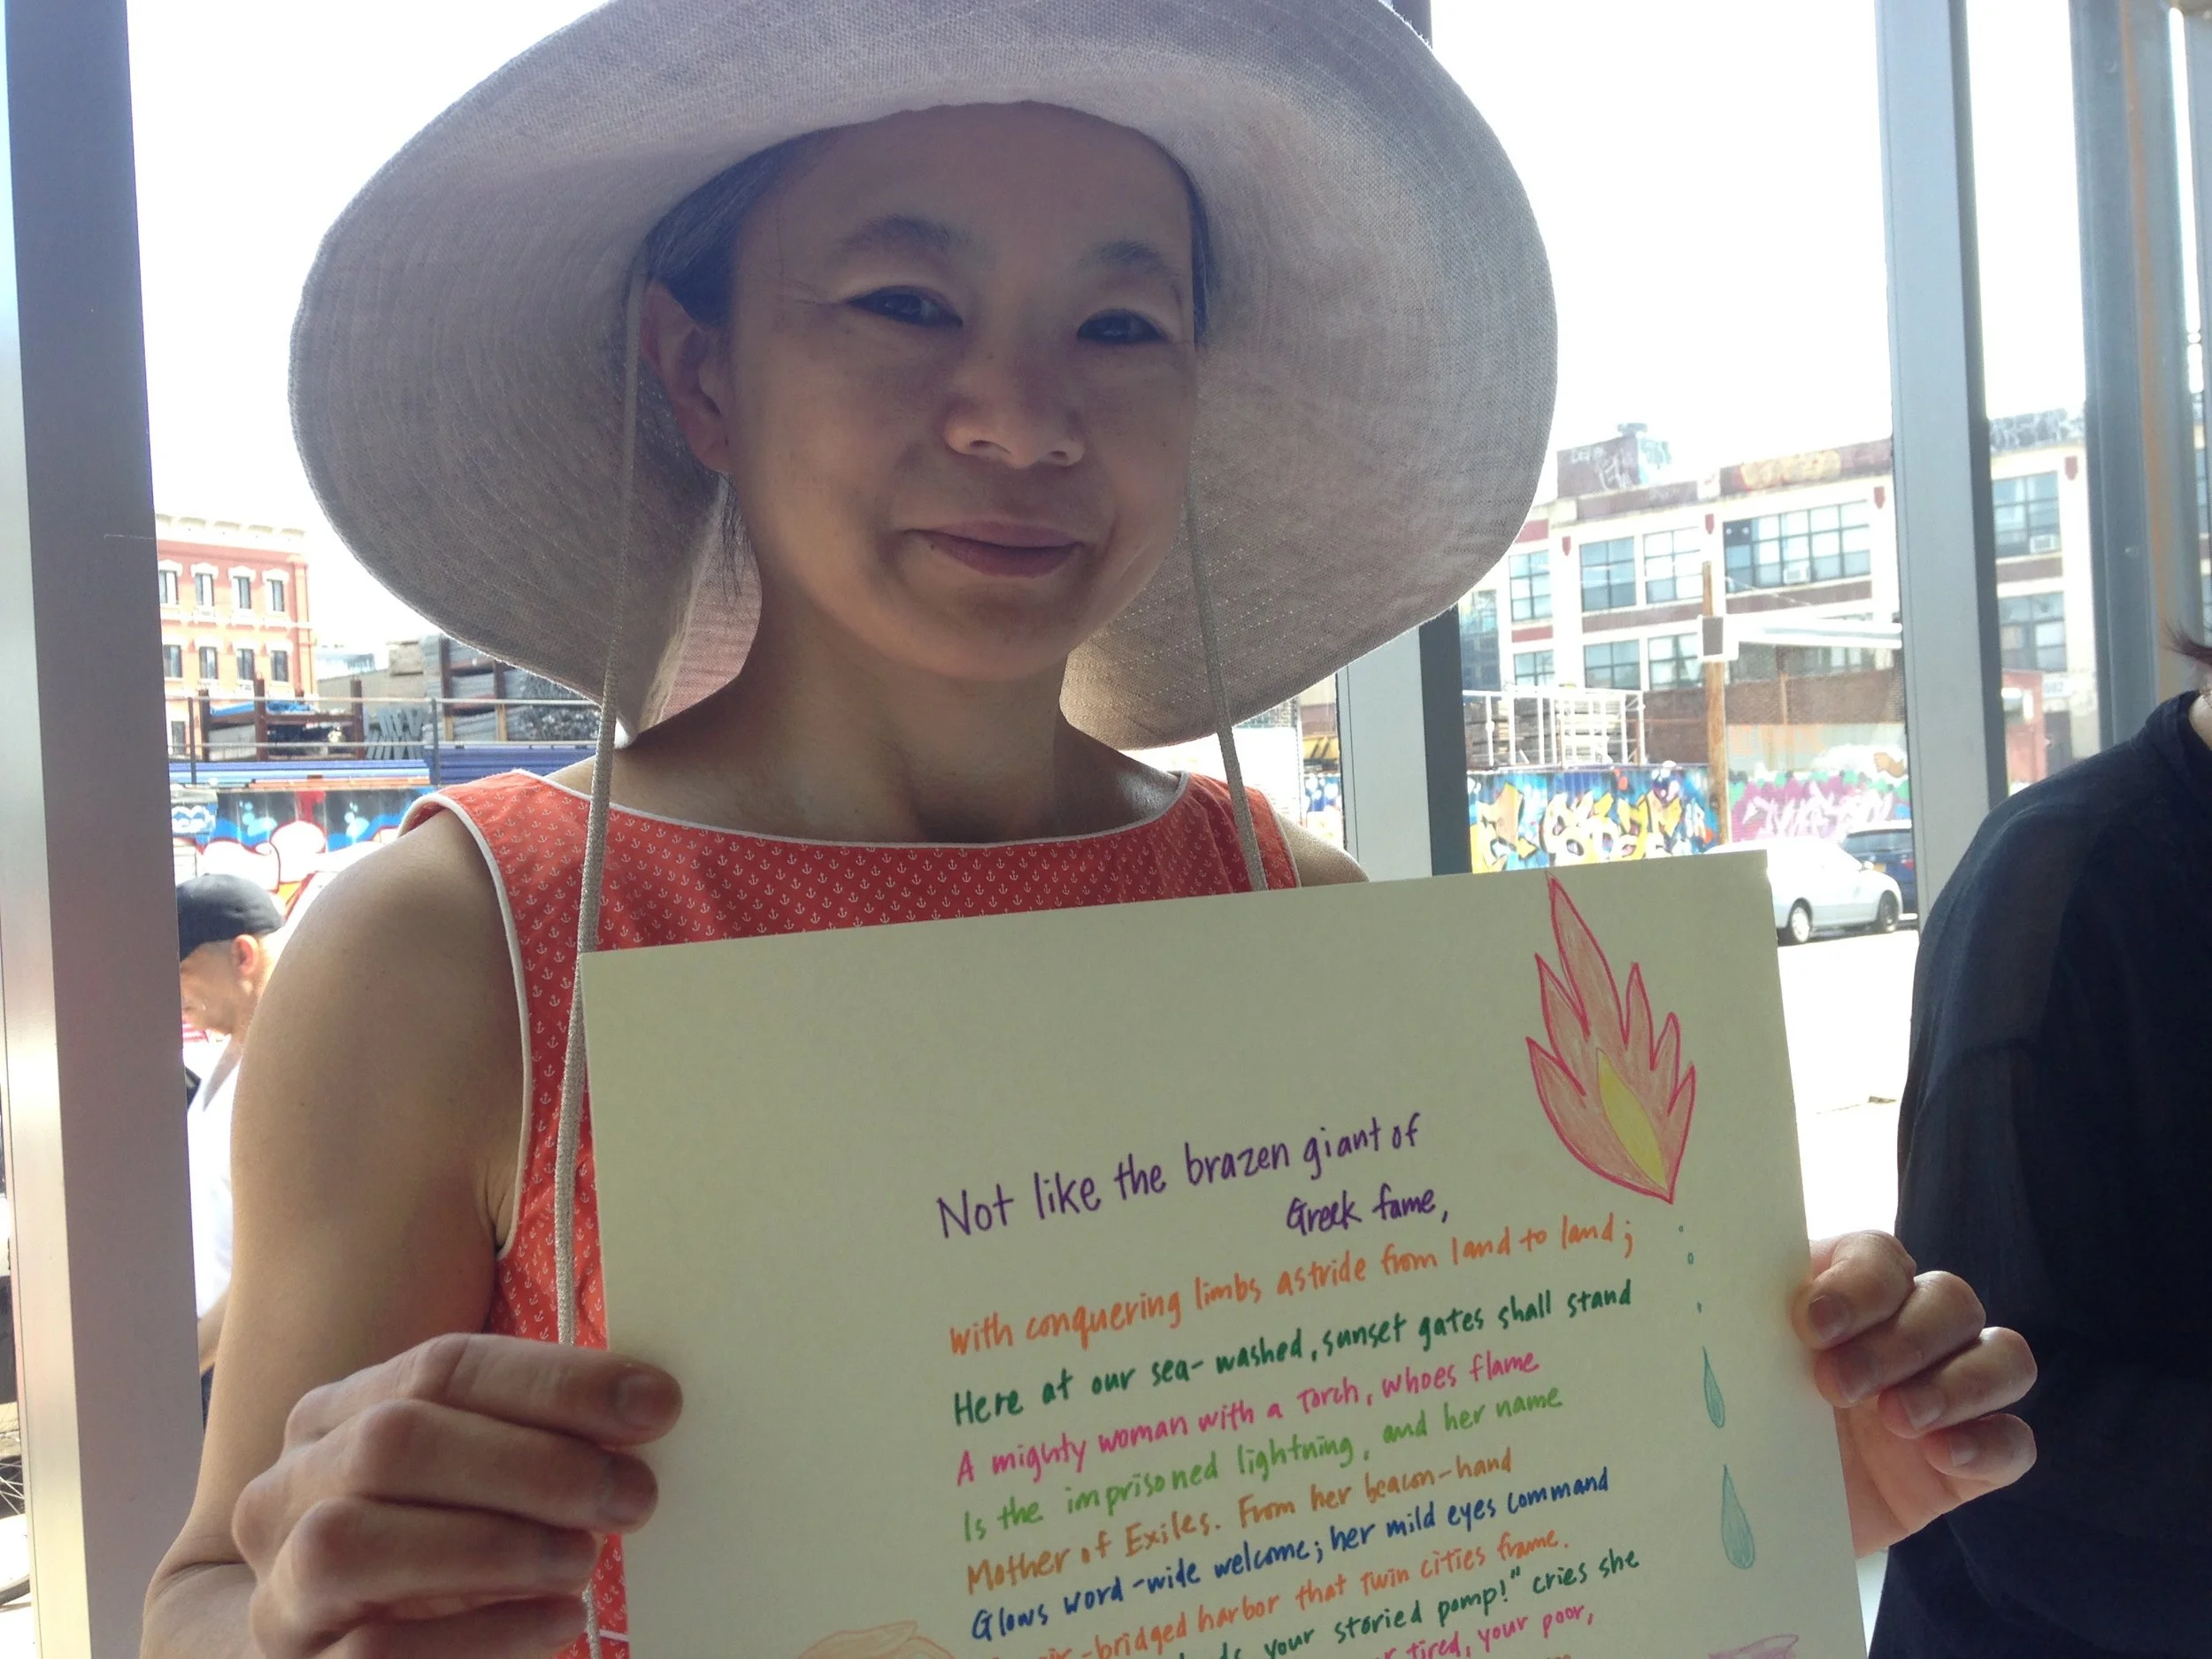 Not like the brazen giant of
Greek fame,
with conquering limbs astride from land to land;
Here at our sea-washed, sunset gates shall stand
A mighty woman with a Torch, whoes flame
Is the imprisoned lightning, and her name
Mother of Exiles. From her beacon-hand
Glows word-wide welcome; her mild eyes command
-bridged harbor that twin cities frame.
your storied pomp!" cries she
tired, your poor,